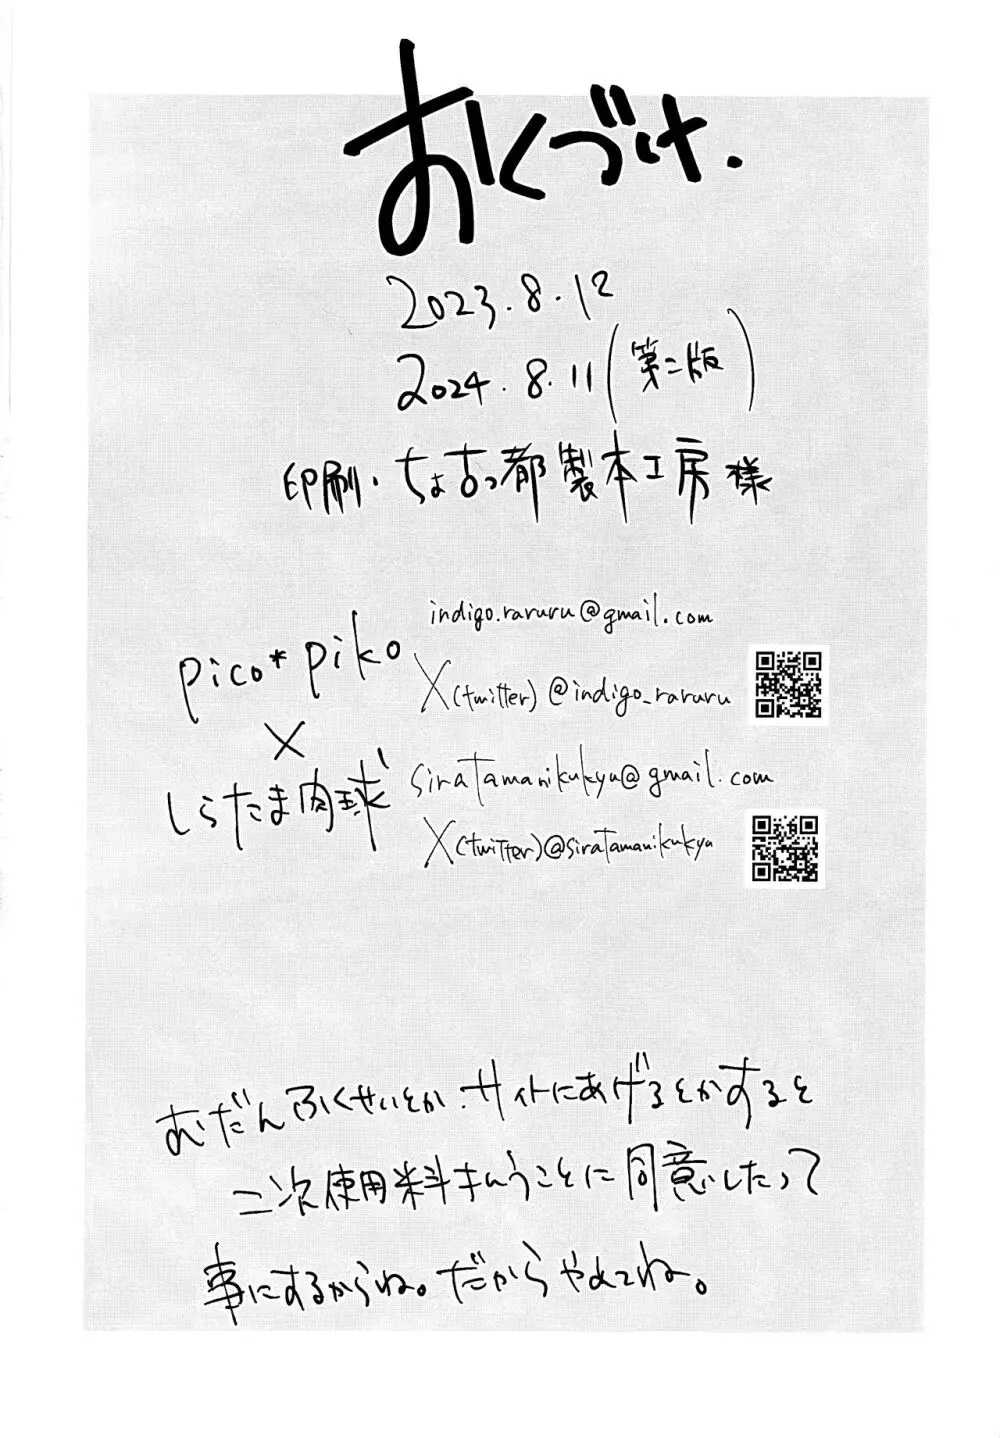 おくづけ.
2023.8.12
2024.8.11(第二版)
印刷・ちょ古っ都製本工房様
pico*piko
indigo.raruru@gmail.com
X(twitter) @indigo_raruru
×
しらたま肉球
siratamanikukyu@gmail.com
X(twitter)@siratamanikukya
むだんふくせいとか.サイトにあげるとかすると
二次使用料払うことに同意したって
事にするからね。だからやめてね。